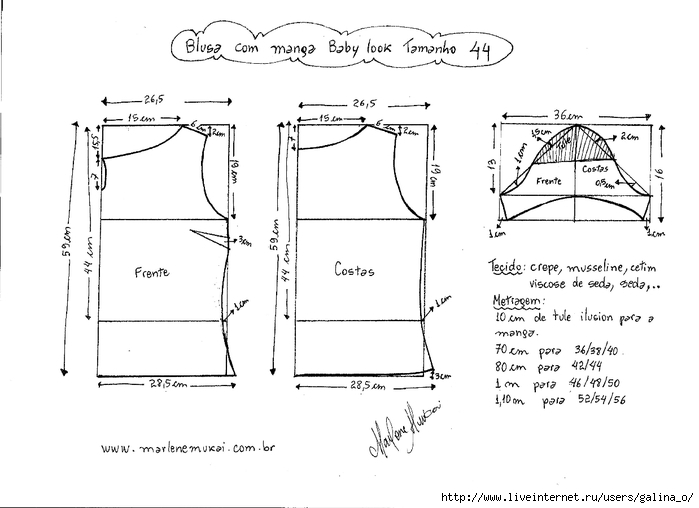 Blusa com manga Baby look Tamanho 44
26,5
15 cm
6 cm
2cm
15,5
7
19 cm
59 cm
44 cm
3cm
Frente
1cm
28,5 cm
26,5
15 cm
6 cm
2cm
7
19 cm
59 cm
44 cm
Costas
1cm
3cm
28,5 cm
36 cm
1,5cm
Tule
2cm
1cm
13
16
Costas
Frente
0,5cm
1cm
1cm
Tecido: crepe, musseline, cetim
viscose de seda, seda,..
Metragem:
10 cm de tule ilusion para a
manga.
70 cm para 36/38/40
80 cm para 42/44
1 m para 46/48/50
1,10m para 52/54/56
Marlene Mukai
www.marlenemukai.com.br
http://www.liveinternet.ru/users/galina_o/